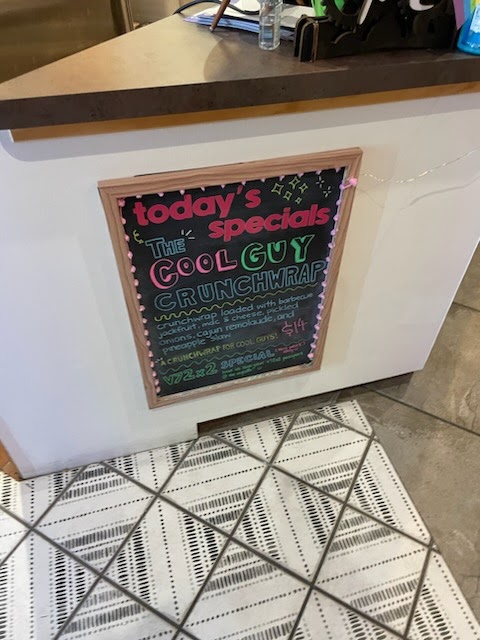 today's
specials
THE
COOL GUY
CRUNCHWRAP
crunchwrap loaded with barbecue
jackfruit, mac & cheese, pickled
onions, cajun remolaude, and
pineapple slaw
$14
A CRUNCHWRAP FOR COOL GUYS!
V72x2 SPECIAL